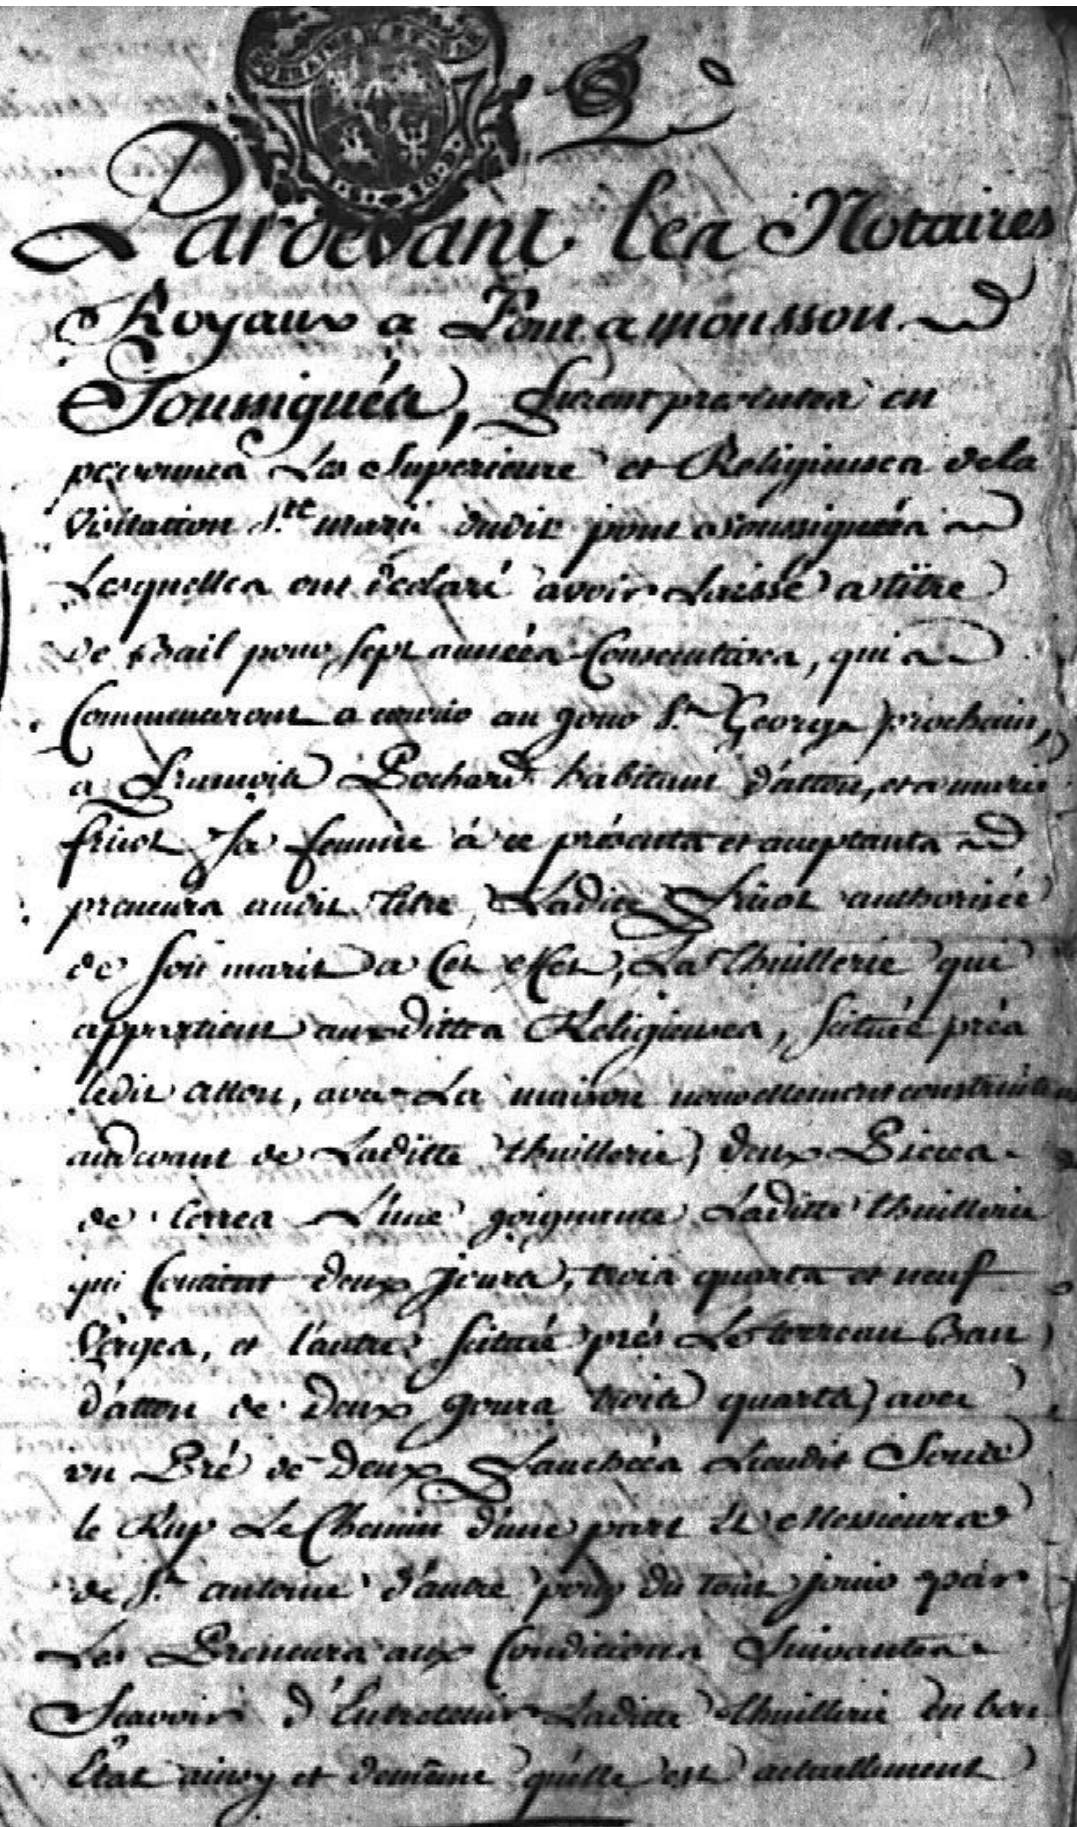 Pardevant les Notaires
Royaux a Pont a mousson
Soussignés, furent presentes en
personnes Les Superieure et Religieuses dela
Visitation Ste marie dudit pont soussignées
Lesquelles ont declaré avoir Laissé a titre
de Bail pour sept années Consecutives, qui
Commenceront a courir au jour St George prochain,
a François Bochard habitant d'atton, et a marie
friot sa femme à ce présents et acceptants
preneurs audit titre, Ladite friot authorisée
de son marit a Cet effet, La thuillerie qui
appartient auxdittes Réligieuses, scituée prés
ledit atton, avec La maison nouvellement construite
audevant de Laditte thuillerie, deux Pieces
de terres L'une joignante Laditte thuillerie
qui Contient deux jours, trois quarts et neuf
Verges, et l'autre scituée prés Le terreau Ban
d'atton de Deux jours trois quarts, avec
un Pré de Deux fauchées Lieudit Sous
le Rup Le Chemin d'une part Et Messieurs
de St antoine d'autre pour du tout jouir par
Les Preneurs aux Conditions Suivantes
Scavoir d'Entretenir Laditte thuillerie en bon
Etat ainsy et demême qu'elle est actuellement